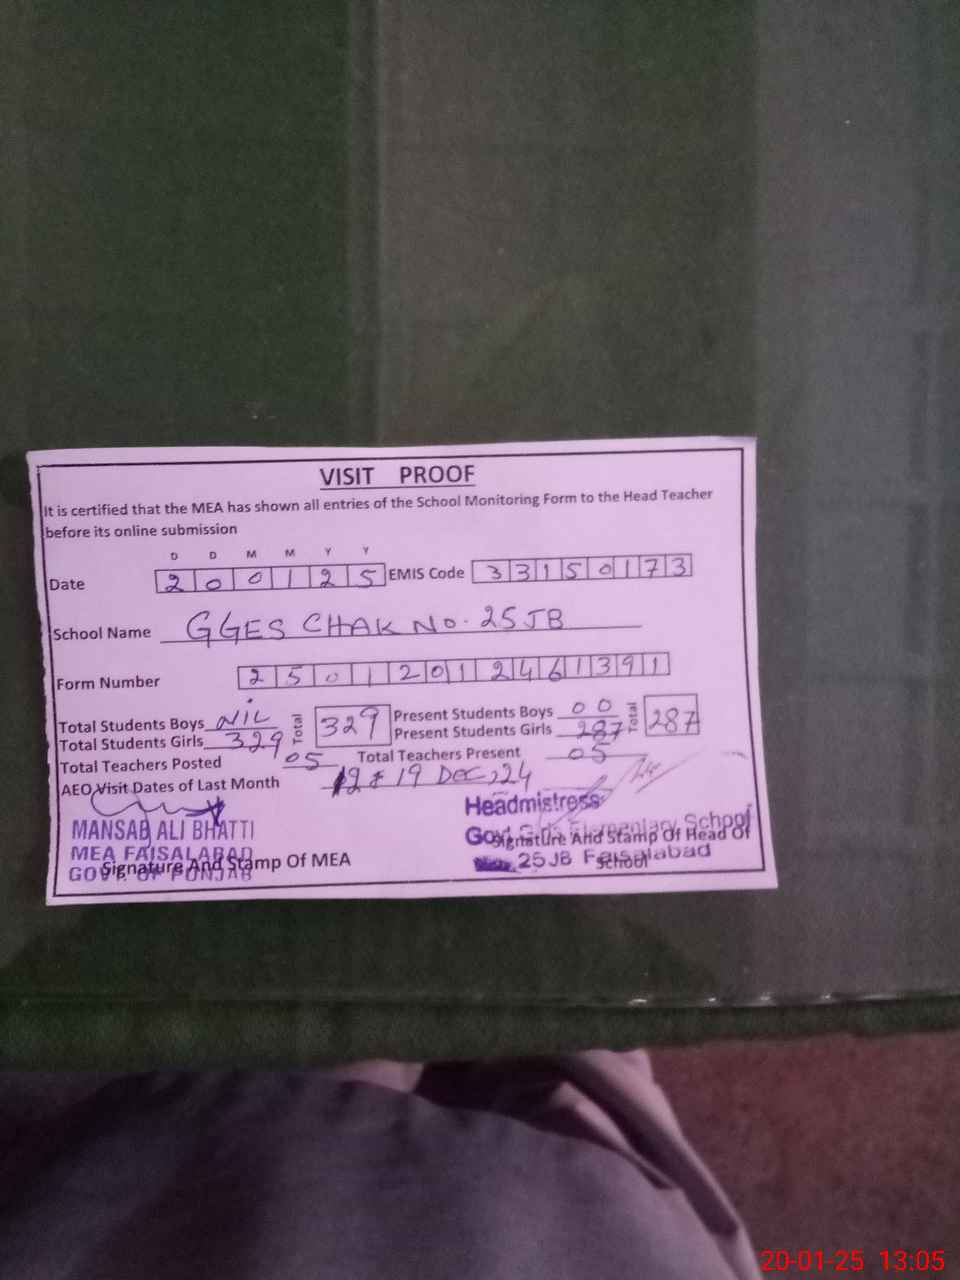 VISIT PROOF
It is certified that the MEA has shown all entries of the School Monitoring Form to the Head Teacher
before its online submission
D D M M Y Y
Date 2 0 0 1 2 5 EMIS Code 3 3 1 5 0 1 7 3
School Name GGES CHAK No. 25JB
Form Number 2 5 0 1 2 0 1 2 4 6 1 3 9 1
Total Students Boys NIL Total 329 Present Students Boys 00 Total 287
Total Students Girls 329 Present Students Girls 287
Total Teachers Posted 05 Total Teachers Present 05
AEO Visit Dates of Last Month 12 & 19 Dec, 24
MANSAB ALI BHATTI
MEA FAISALABAD
GOVT. OF PUNJAB
Signature And Stamp Of MEA
Headmistress
Govt. Girls Elementary School
25JB Faisalabad
Signature And Stamp Of Head Of
School
20-01-25 13:05